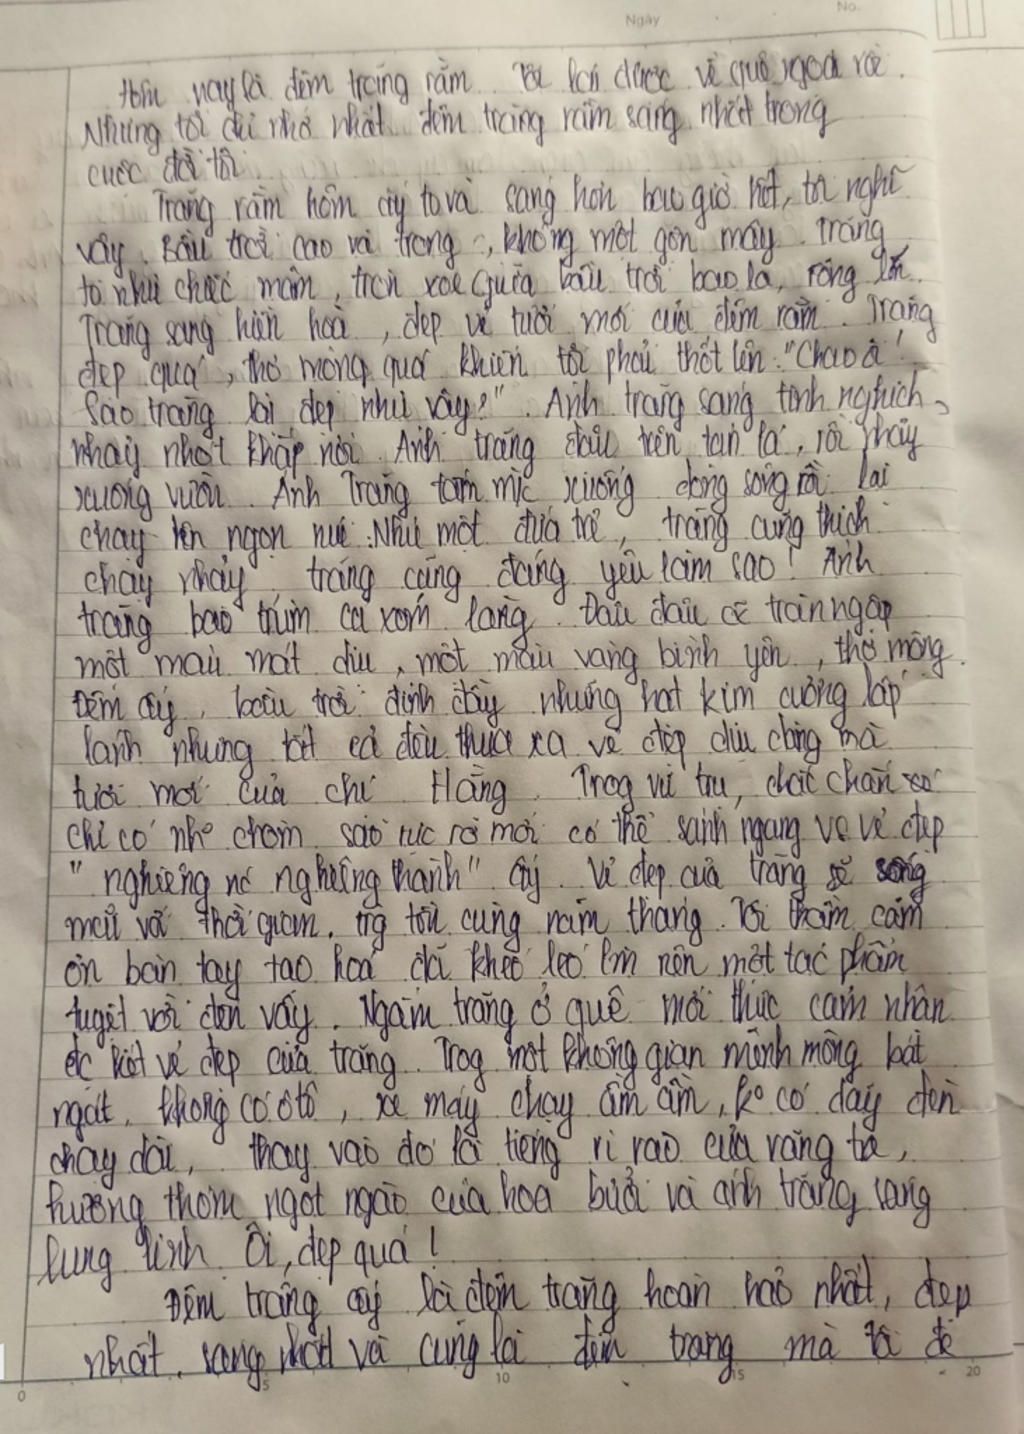 Ngày
No.
Hôm nay là đêm trăng rằm. Tôi lại được về quê ngoại rồi.
Nhưng tôi chỉ nhớ nhất đêm trăng rằm sáng nhất trong
cuộc đời tôi.
Trăng rằm hôm ấy to và sáng hơn bao giờ hết, tôi nghĩ
vậy. Bầu trời cao và trong, không một gợn mây. Trăng
to như chiếc mâm, tròn xoe giữa bầu trời bao la, rộng lớn.
Trăng sáng hiền hoà, đẹp vẻ tươi mới của đêm rằm. Trăng
đẹp quá, thơ mộng quá khiến tôi phải thốt lên: "Chao ôi!
Sao trăng lại đẹp như vậy?". Ánh trăng sáng tinh nghịch,
nhảy nhót khắp nơi. Ánh trăng đậu trên tán lá, rồi nhảy
xuống vườn. Ánh Trăng tắm mịc xuống dòng sông rồi lại
chạy lên ngọn núi. Như một đứa trẻ, trăng cũng thích
chạy nhảy, trăng cũng đáng yêu làm sao! Ánh
trăng bao trùm cả xóm làng. Đâu đâu cx tràn ngập
một màu mát dịu, một màu vàng bình yên, thơ mộng.
Đêm ấy, bầu trời đính đầy những hạt kim cương lấp
lánh nhưng tất cả đều thua xa vẻ đẹp dịu dàng mà
tươi mới của chị Hằng. Trog vũ trụ, chắc chắn
chỉ có sao rực rỡ mới có thể sánh ngang vs vẻ đẹp
"nghiêng nc nghiêng thành" ấy. Vẻ đẹp của trăng sẽ sống
mãi với thời gian, trg tồn cùng năm tháng. Tôi thầm cảm
ơn bàn tay tạo hoá đã khéo léo lm nên một tác phẩm
tuyệt vời đến vậy. Ngắm trăng ở quê mới thực cảm nhận
đc hết vẻ đẹp của trăng. Trog một không gian mênh mông bát
ngát, không có ôtô, xe máy chạy ầm ầm, ko có dãy đèn
chạy dài, thay vào đó là tiếng rì rào của rặng tre,
hương thơm ngọt ngào của hoa bưởi và ánh trăng sáng
lung linh. Ôi, đẹp quá!
Đêm trăng ấy là đêm trăng hoàn hảo nhất, đẹp
nhất, sáng nhất và cũng là đêm trăng mà tôi để
0 5 10 15 20